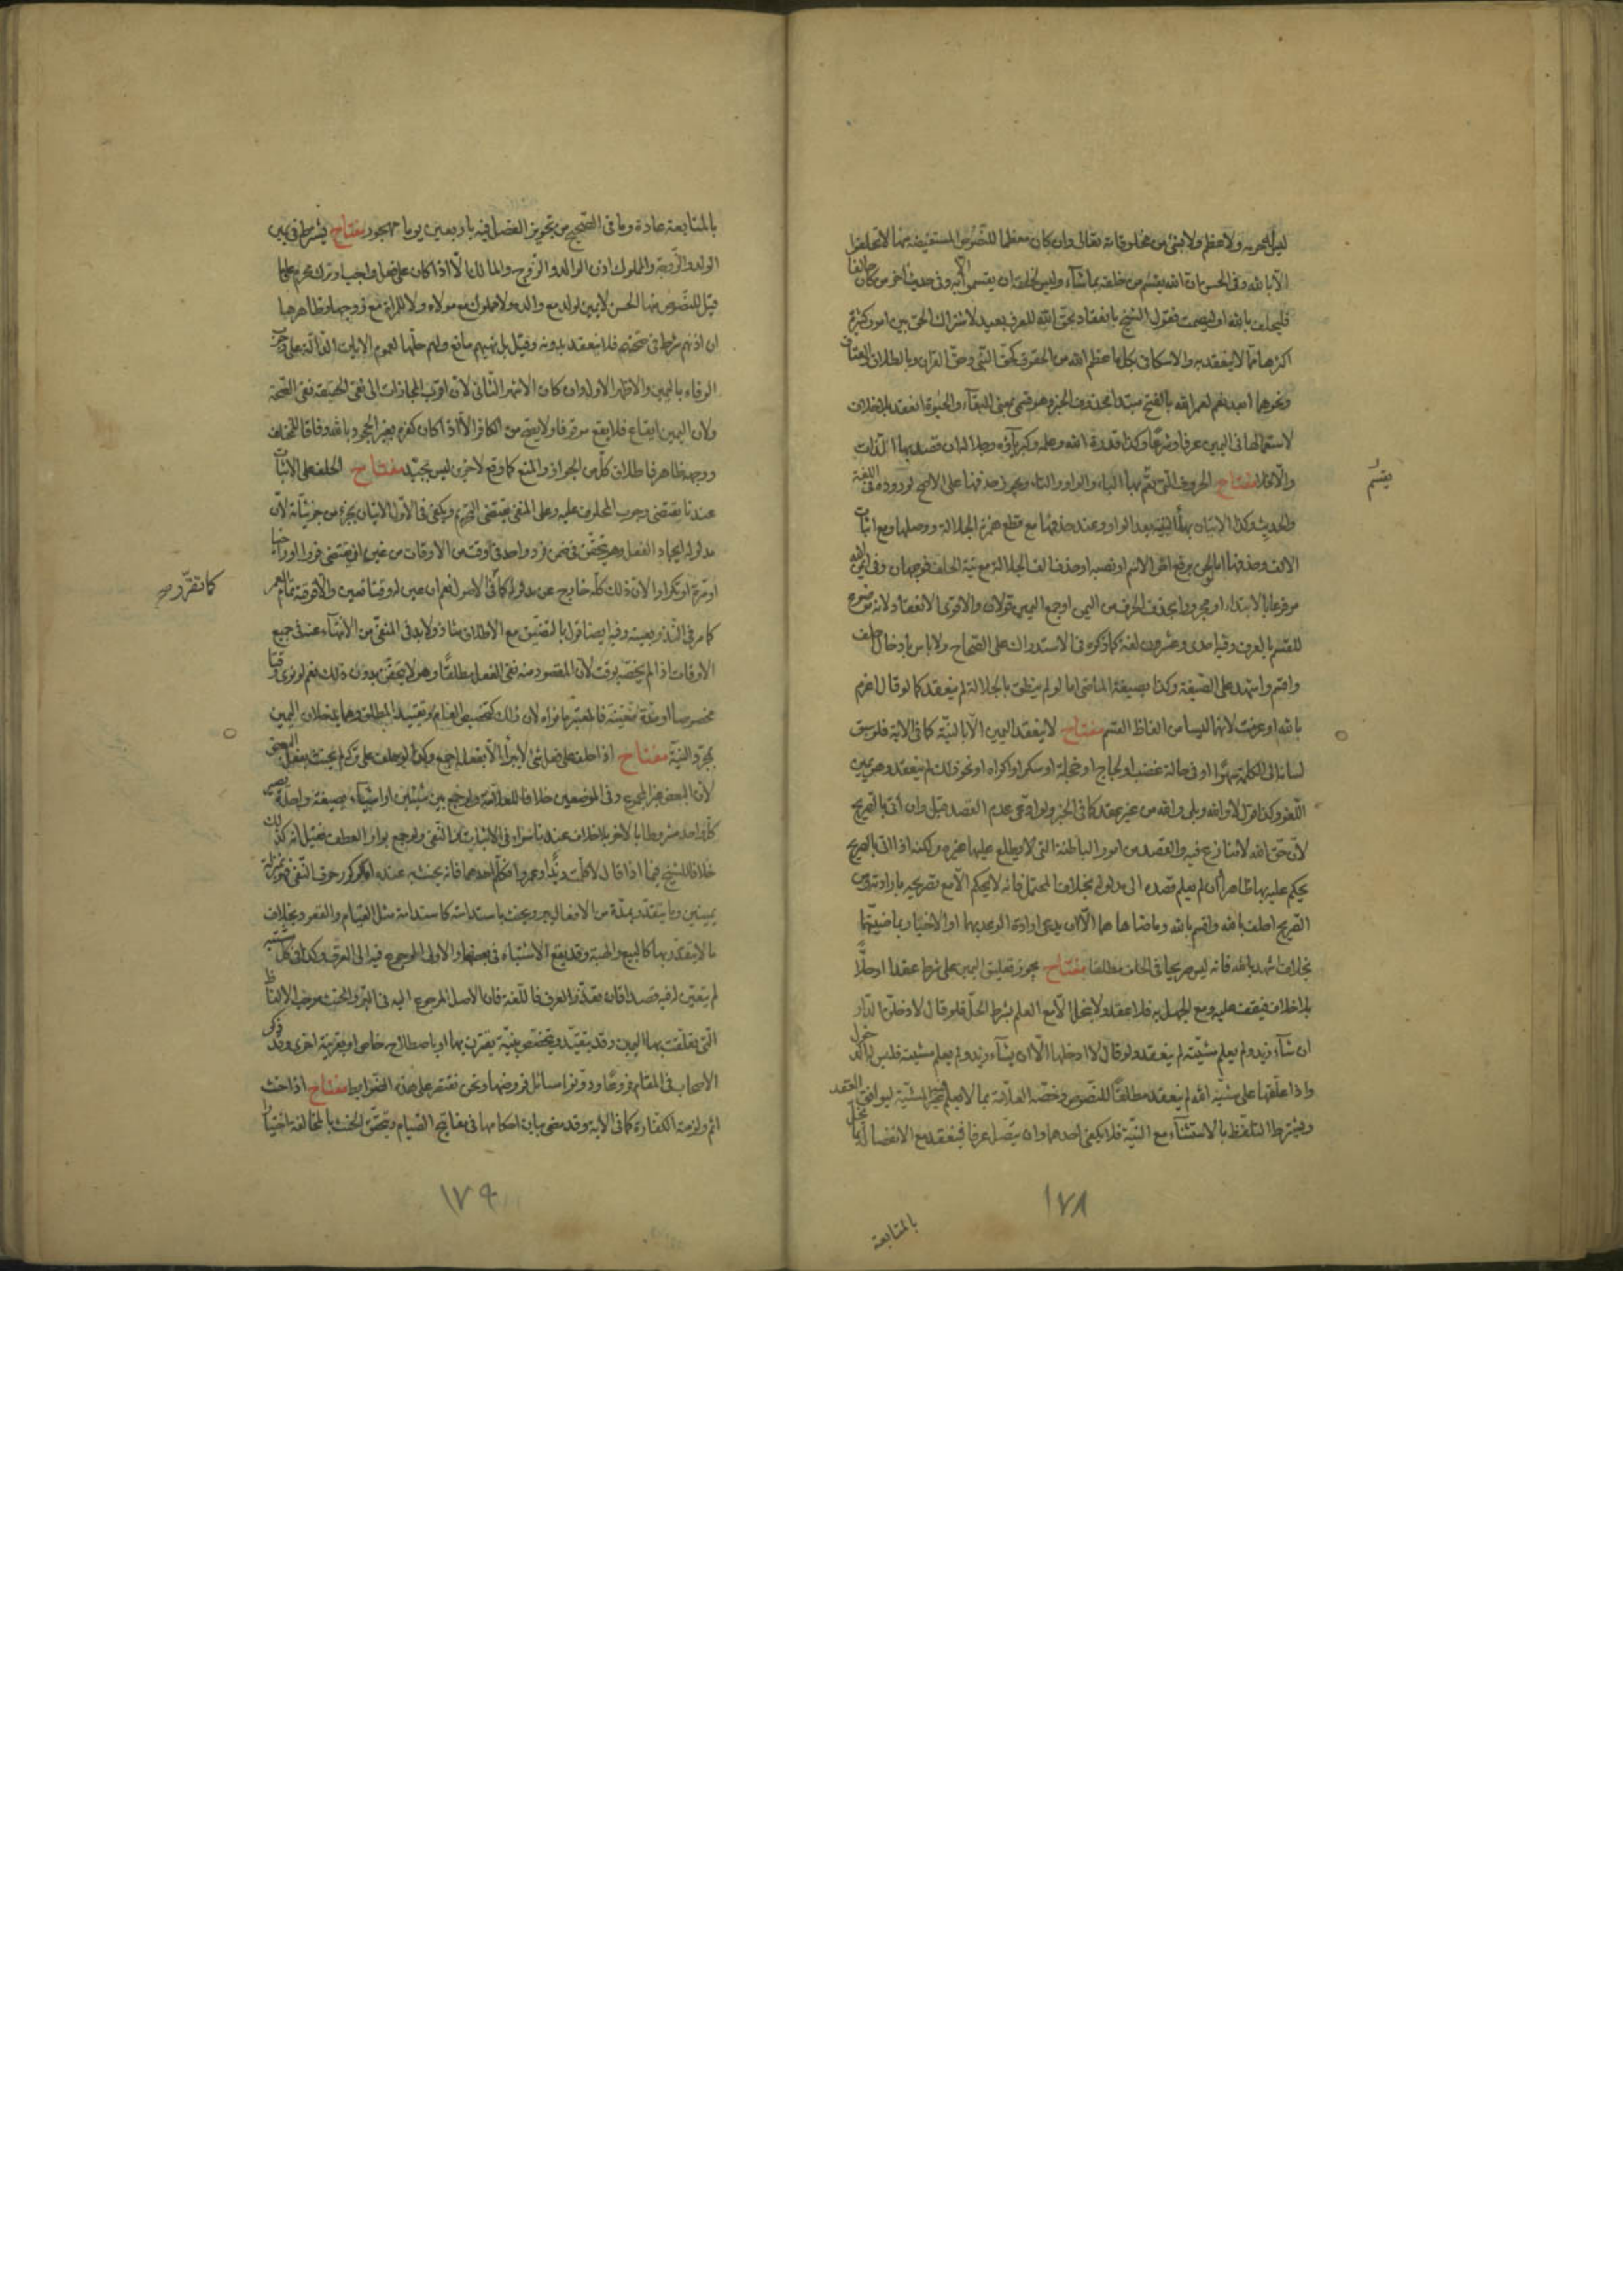 الا بالله وفى الحسن ان الله يقسم من خلقه بما شاء وليس لخلقه ان يقسموا الا به وفى حديث اخر من كان حالفا
فليحلف بالله او ليصمت فقول الشيخ بانعقاده بحق الله للعرف بعيد لاشتراك الحق بين امور كثيرة
اكثرها مما لا ينعقد به والاسكافى بكل ما عظم الله من الحقوق كحق النبى وحق القران وبالطلاق والعتاق
ونحوهما ابعد نعم لعمر الله بالفتح مبتدأ محذوف الخبر وهو قسمى بمعنى البقاء والحيوة انعقد بلا خلاف
لاستعمالها فى اليمين عرفا وشرعا وكذا قدرة الله وعلمه وكبرياؤه وجلاله ان قصد بها الذات
والا فلا مفتاح الحروف التى يقسم بها الباء والواو والتاء ويجوز حذفها على الاصح لوروده فى اللغة
يقسم
والحديث وكذا الاتيان بهاء التنبيه بعد الواو وعند حذفها مع قطع همزة الجلالة ووصلها ومع اثبات
للقسم بالعرف وفيها احدى وعشرون لغة كما ذكره فى الاستدراك على الصحاح ولا باس بادخال احلف
واقسم واشهد على الصيغة وكذا بصيغة الماضى اما لو لم ينطق بالجلالة لم ينعقد كما لو قال اعزم
بالله او عزمت لانهما ليسا من الفاظ القسم مفتاح لا ينعقد اليمين الا بالنية كما فى الاية فلو سبق
لسانه الى الكلمة سهوا او فى حالة غضب او لجاج او عجلة او سكر او اكراه او نحو ذلك لم ينعقد وهو يمين
اللغو وكذا قول لا والله وبلى والله من غير عقد كما فى الخبر ولو ادعى عدم القصد قبل وان اتى بالصريح
لان حق الله لا منازع فيه والقصد من امور الباطنة التى لا يطلع عليها غيره ولكنه اذا اتى بالصريح
يحكم عليه بها ظاهرا وان لم يعلم قصده الى مدلوله بخلاف المحتمل فانه لا يحكم الا مع تصريحه بارادته ومن
الصريح احلف بالله واقسم بالله وماضاهاهما الا ان يدعى ارادة الوعد بهما او الاخبار بماضيهما
بخلاف اشهد بالله فانه ليس صريحا فى الحلف مطلقا مفتاح يجوز تعليق اليمين على شرط عقدا او حلا
بلا خلاف فيقف عليه ومع الجهل به فلا عقد ولا ينحل الا مع العلم بشرط الحل فلو قال لادخلن الدار
ان شاء زيد ولم يعلم مشيته لم ينعقد ولو قال لا ادخلها الا ان يشاء زيد ولم يعلم مشيته فليس له الدخول
واذا علقها على مشية الله لم ينعقد مطلقا للنصوص وخصه العلامة بما لا يعلم فيه المشية ليوافق العقد
ويشترط التلفظ بالاستثناء مع النية فلا يكفى احدهما وان يتصل عرفا فينعقد مع الانفصال
١٧٨
بالمتابعة
بالمتابعة عادة وما فى الصحيح من تجويز الفصل فيه باربعين يوما مهجور مفتاح يشترط فى يمين
الولد والزوجة والمملوك اذن الوالد والزوج والمالك الا اذا كان على فعل واجب او ترك محرم
قيل للنصوص منها الحسن لا يمين لولد مع والده ولا مملوك مع مولاه ولا للمراة مع زوجها وظاهرها
ان اذنهم شرط فى صحته فلا ينعقد بدونه وقيل بل نهيهم مانع ولهم حلها لعموم الايات الدالة على وجوب
الوفاء باليمين والاظهر الاول وان كان الاشهر الثانى لان اقرب المجازات الى نفى الحقيقة نفى الصحة
ولان اليمين ايقاع فلا يقع موقوفا ولا يقع من الكافر الا اذا كان كفره بغير الجحود بالله وفاقا للمختلف
ووجهه ظاهر فاطلاق كل من الجواز والمنع كما وقع لاخرين ليس بجيد مفتاح الحلف على الاثبات
عندنا يقتضى وجوب المحلوف عليه وعلى المنفى يقتضى التحريم ويكفى فى الاول الاتيان بجزء من جزئياته لان
مدلوله ايجاد الفعل وهو يتحقق فى ضمن فرد واحد فى اى وقت من الاوقات من غير ان يقتضى فورا او تراخيا
او مرة او تكرارا لان ذلك كله خارج عن مدلوله كما فى الاصول نعم ان عين له وقتا تعين والا فوقته تمام العمر
كما تقرر صح
كما مر فى النذر بعينه وفيه ايضا قول بالتضيق مع الاطلاق شاذ ولابد فى المنفى من الانتهاء عنه فى جميع
الاوقات اذا لم يخصه بوقت لان المقصود منه نفى الفعل مطلقا وهو لا يتحقق بدون ذلك نعم لو نوى وقتا
مخصوصا او مدة معينة فالمعتبر ما نواه لان ذلك كتخصيص العام او تقييد المطلق وهما يدخلان اليمين
بمجرد النية مفتاح اذا حلف على فعل شئ لا يبرا الا بفعله اجمع وكذا لو حلف على تركه لم يحنث بفعل البعض
لان البعض غير المجموع وفى الموضعين خلاف للعلامة ولو جمع بين شيئين او اشياء بصيغة واحدة
خلافا للشيخ فيما اذا قال لا كلمت زيدا وعمروا فكلم احدهما فانه يحنث به عنده اما لو كرر حرف النفى فهو بمنزلة
يمينين وما يتقدر بمدة من الافعال يبر ويحنث باستدامته كابتدائه مثل القيام والقعود بخلاف
ما لا يتقدر بها كالبيع والهبة وقد يقع الاشتباه فى بعضها والاولى الرجوع فيه الى العرف وكذا فى كل مشتبه
لم يتعين له فيه قصد فان فقد العرف فاللغة فان الاصل المرجوع اليه فى البر والحنث موجب الالفاظ
التى تعلقت بها اليمين وقد يتقيد ويتخصص بنية يقترن بها او باصطلاح خاص او بقرينة اخرى وقد ذكر
الاصحاب فى المقام فروعا ودونوا مسائل فروضها ونحن نقتصر على هذه الضوابط مفتاح اذا حنث
اثم ولزمته الكفارة كما فى الاية وقد مضى بيان احكامها فى مفاتيح الصيام ويتحقق الحنث بالمخالفة اختيارا
١٧٩